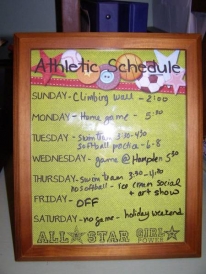 Athletic Schedule
SUNDAY - Climbing wall - 2:00
MONDAY - Home game - 5:30
TUESDAY - Swim team 3:30-4:30
softball practice - 6-8
WEDNESDAY - game @ Hampden 5:30
THURSDAY - Swim team 3:30-4:30
no softball - ice cream social
+ art show
FRIDAY - OFF
SATURDAY - no game - holiday weekend
ALL STAR GIRL POWER